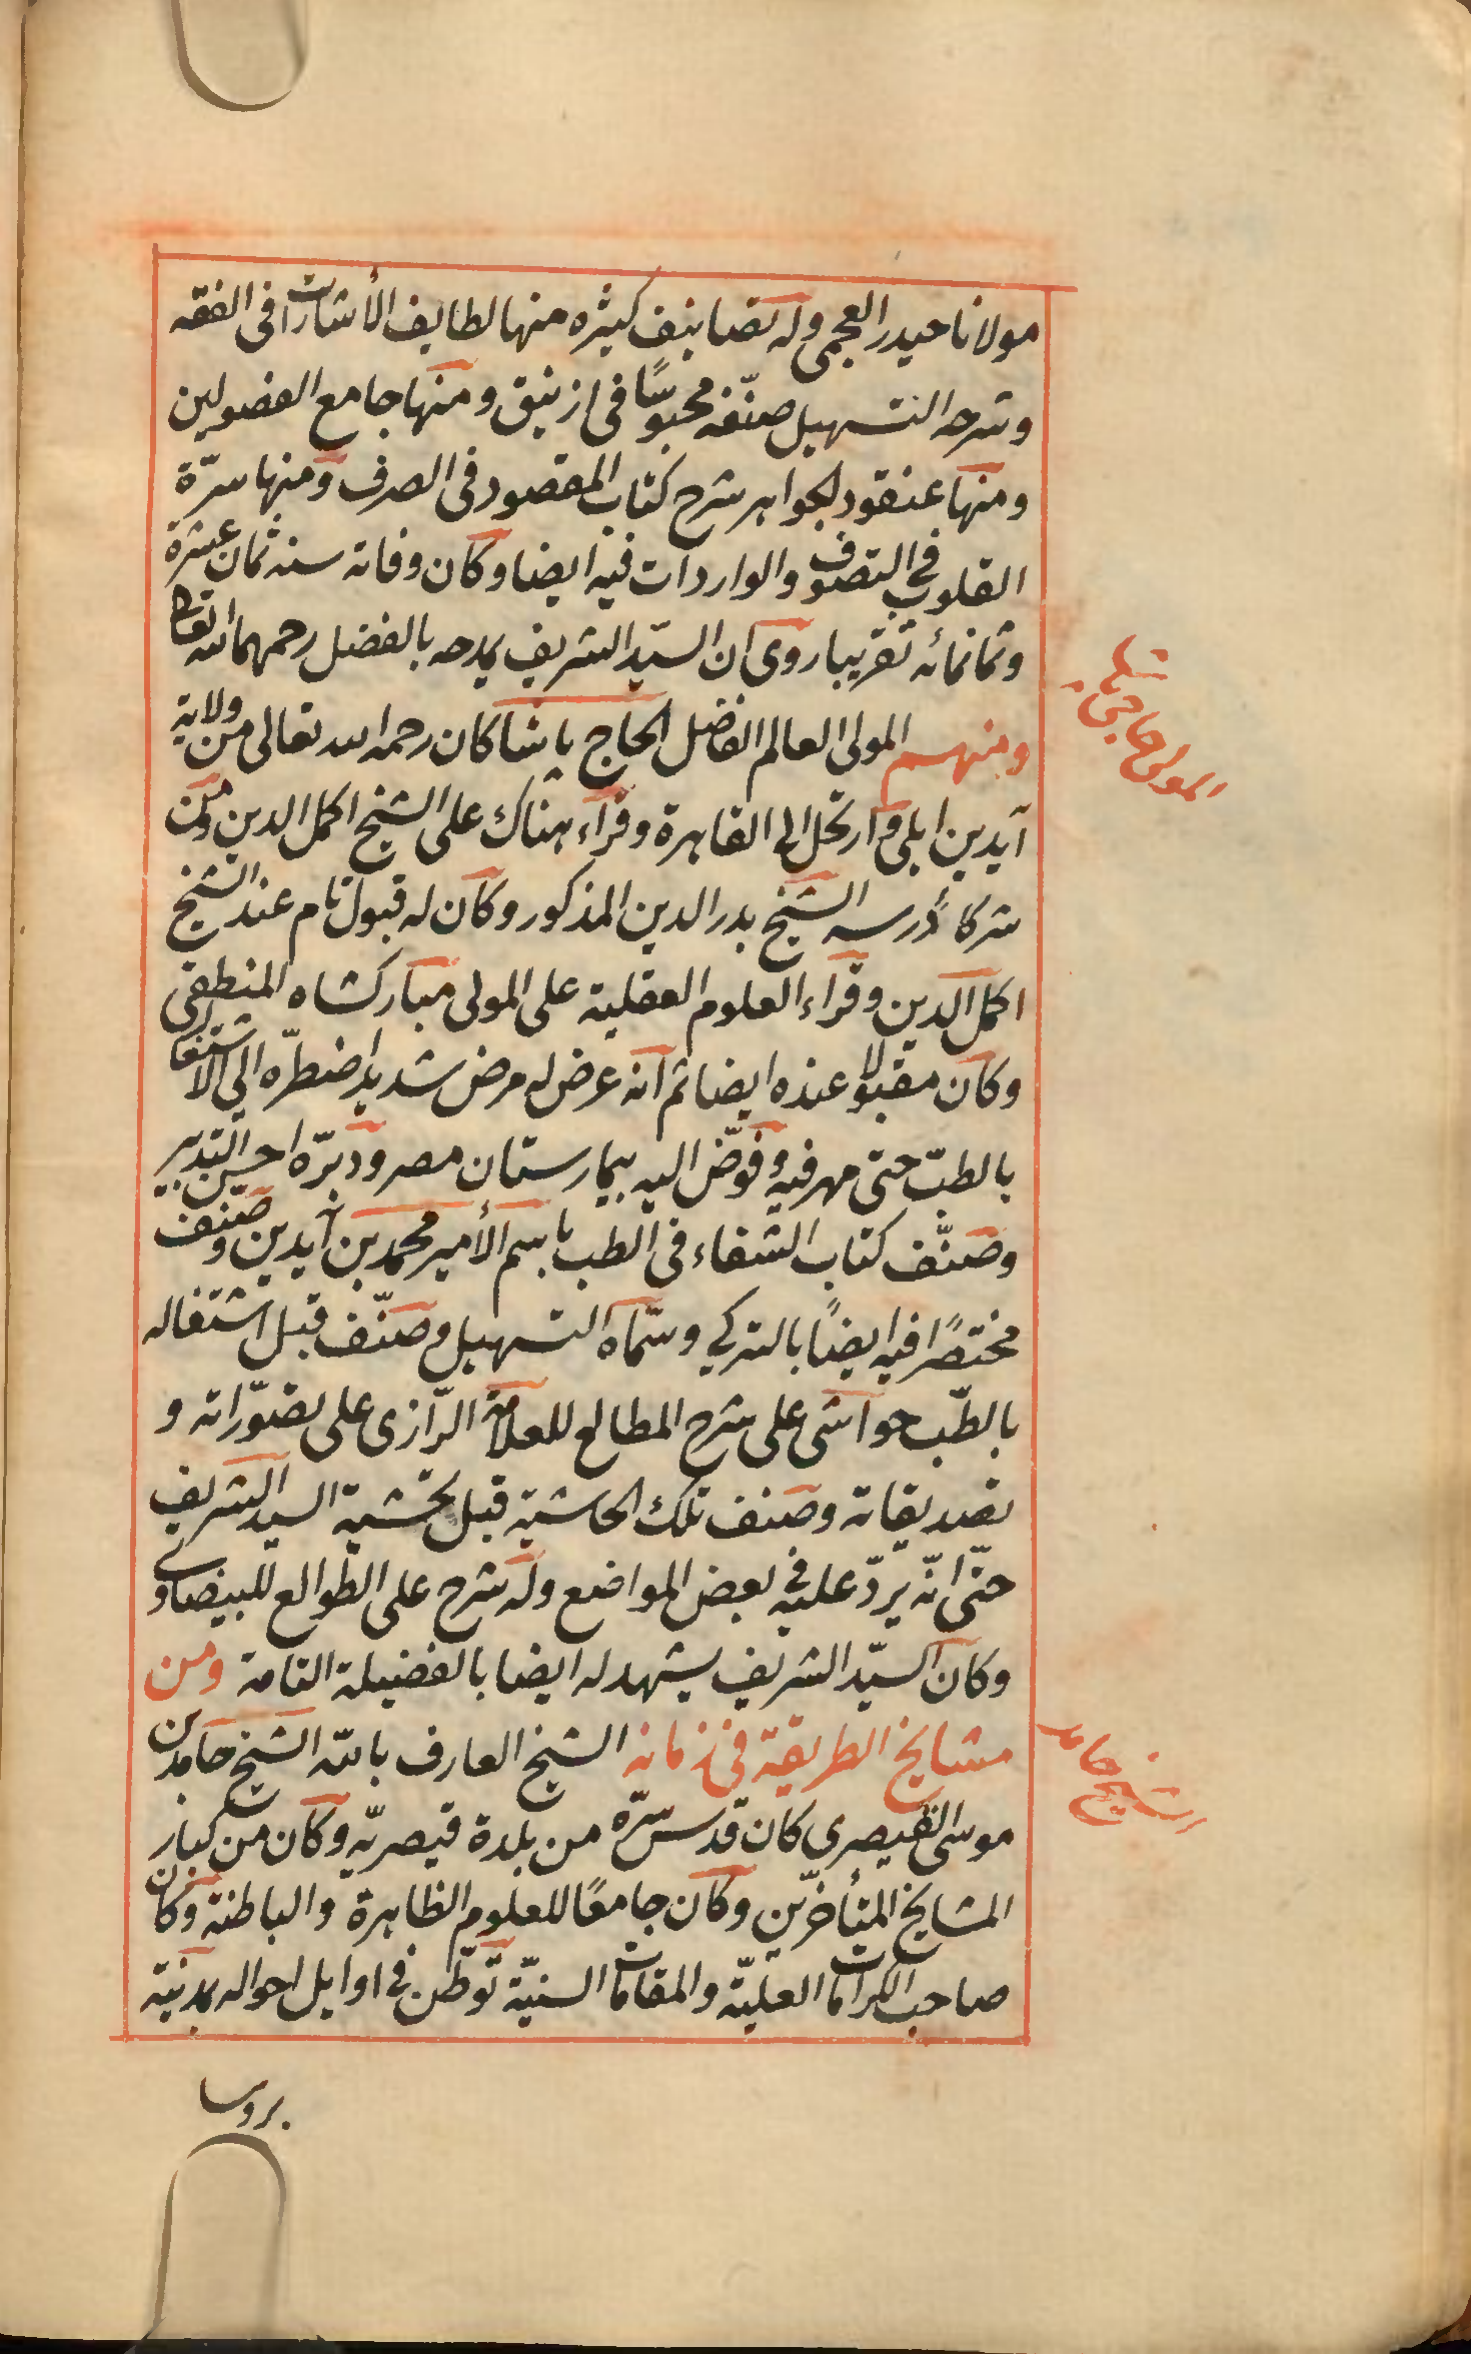 مولانا حيدر العجمى وله تصانيف كثيره منها لطايف الأشارات فى الفقه
وشرحه التسهيل صنّفه محبوسًا فى ازنيق ومنها جامع الفصولين
ومنها عنقود الجواهر شرح كتاب المقصود فى الصرف ومنها سرّة
القلوب فى التصوف والواردات فيه ايضا وكان وفاته سنه ثمان عشرة
وثمانمائه تقريبا روى ان السيّد الشريف يمدحه بالفضل رحمهما الله تعالى
المولى حاجى پاشا
ومنهم المولى العالم الفاضل الحاج پاشا كان رحمه الله تعالى من ولاية
آيدين ايلى وارتحل الى القاهرة وقراء هناك على الشيخ اكمل الدين ومن
شركاء درسه الشيخ بدر الدين المذكور وكان له قبول تام عند الشيخ
اكمل الدين وقراء العلوم العقلية على المولى مباركشاه المنطقى
وكان مقبولا عنده ايضا ثم انه عرض له مرض شديد اضطرّه الى الاشتغال
بالطبّ حتى مهر فيه وفوّض اليه بيمارستان مصر ودبّره احسن التدبير
وصنّف كتاب الشفاء فى الطب باسم الأمير محمد بن آيدين وصنف
مختصرًا فيه ايضًا بالتركي وسمّاه التسهيل وصنّف قبل اشتغاله
بالطّب حواشى على شرح المطالع للعلامة الرّازى على تصوّراته و
تصديقاته وصنف تلك الحاشية قبل تحشية السيد الشريف
حتّى انّه يردّ عليه فى بعض المواضع وله شرح على الطوالع للبيضاوى
وكان السيّد الشريف يشهد له ايضا بالفضيلة التامة ومن
الشيخ حامد
مشايخ الطريقة فى زمانه الشيخ العارف بالله الشيخ حامد بن
موسى القيصرى كان قدس سرّه من بلدة قيصريّه وكان من كبار
المشايخ المتأخرّين وكان جامعًا للعلوم الظاهرة والباطنة وكان
صاحب الكرامات العليّة والمقامات السنيّة توطّن فى اوايل احواله بمدينة
بروسا